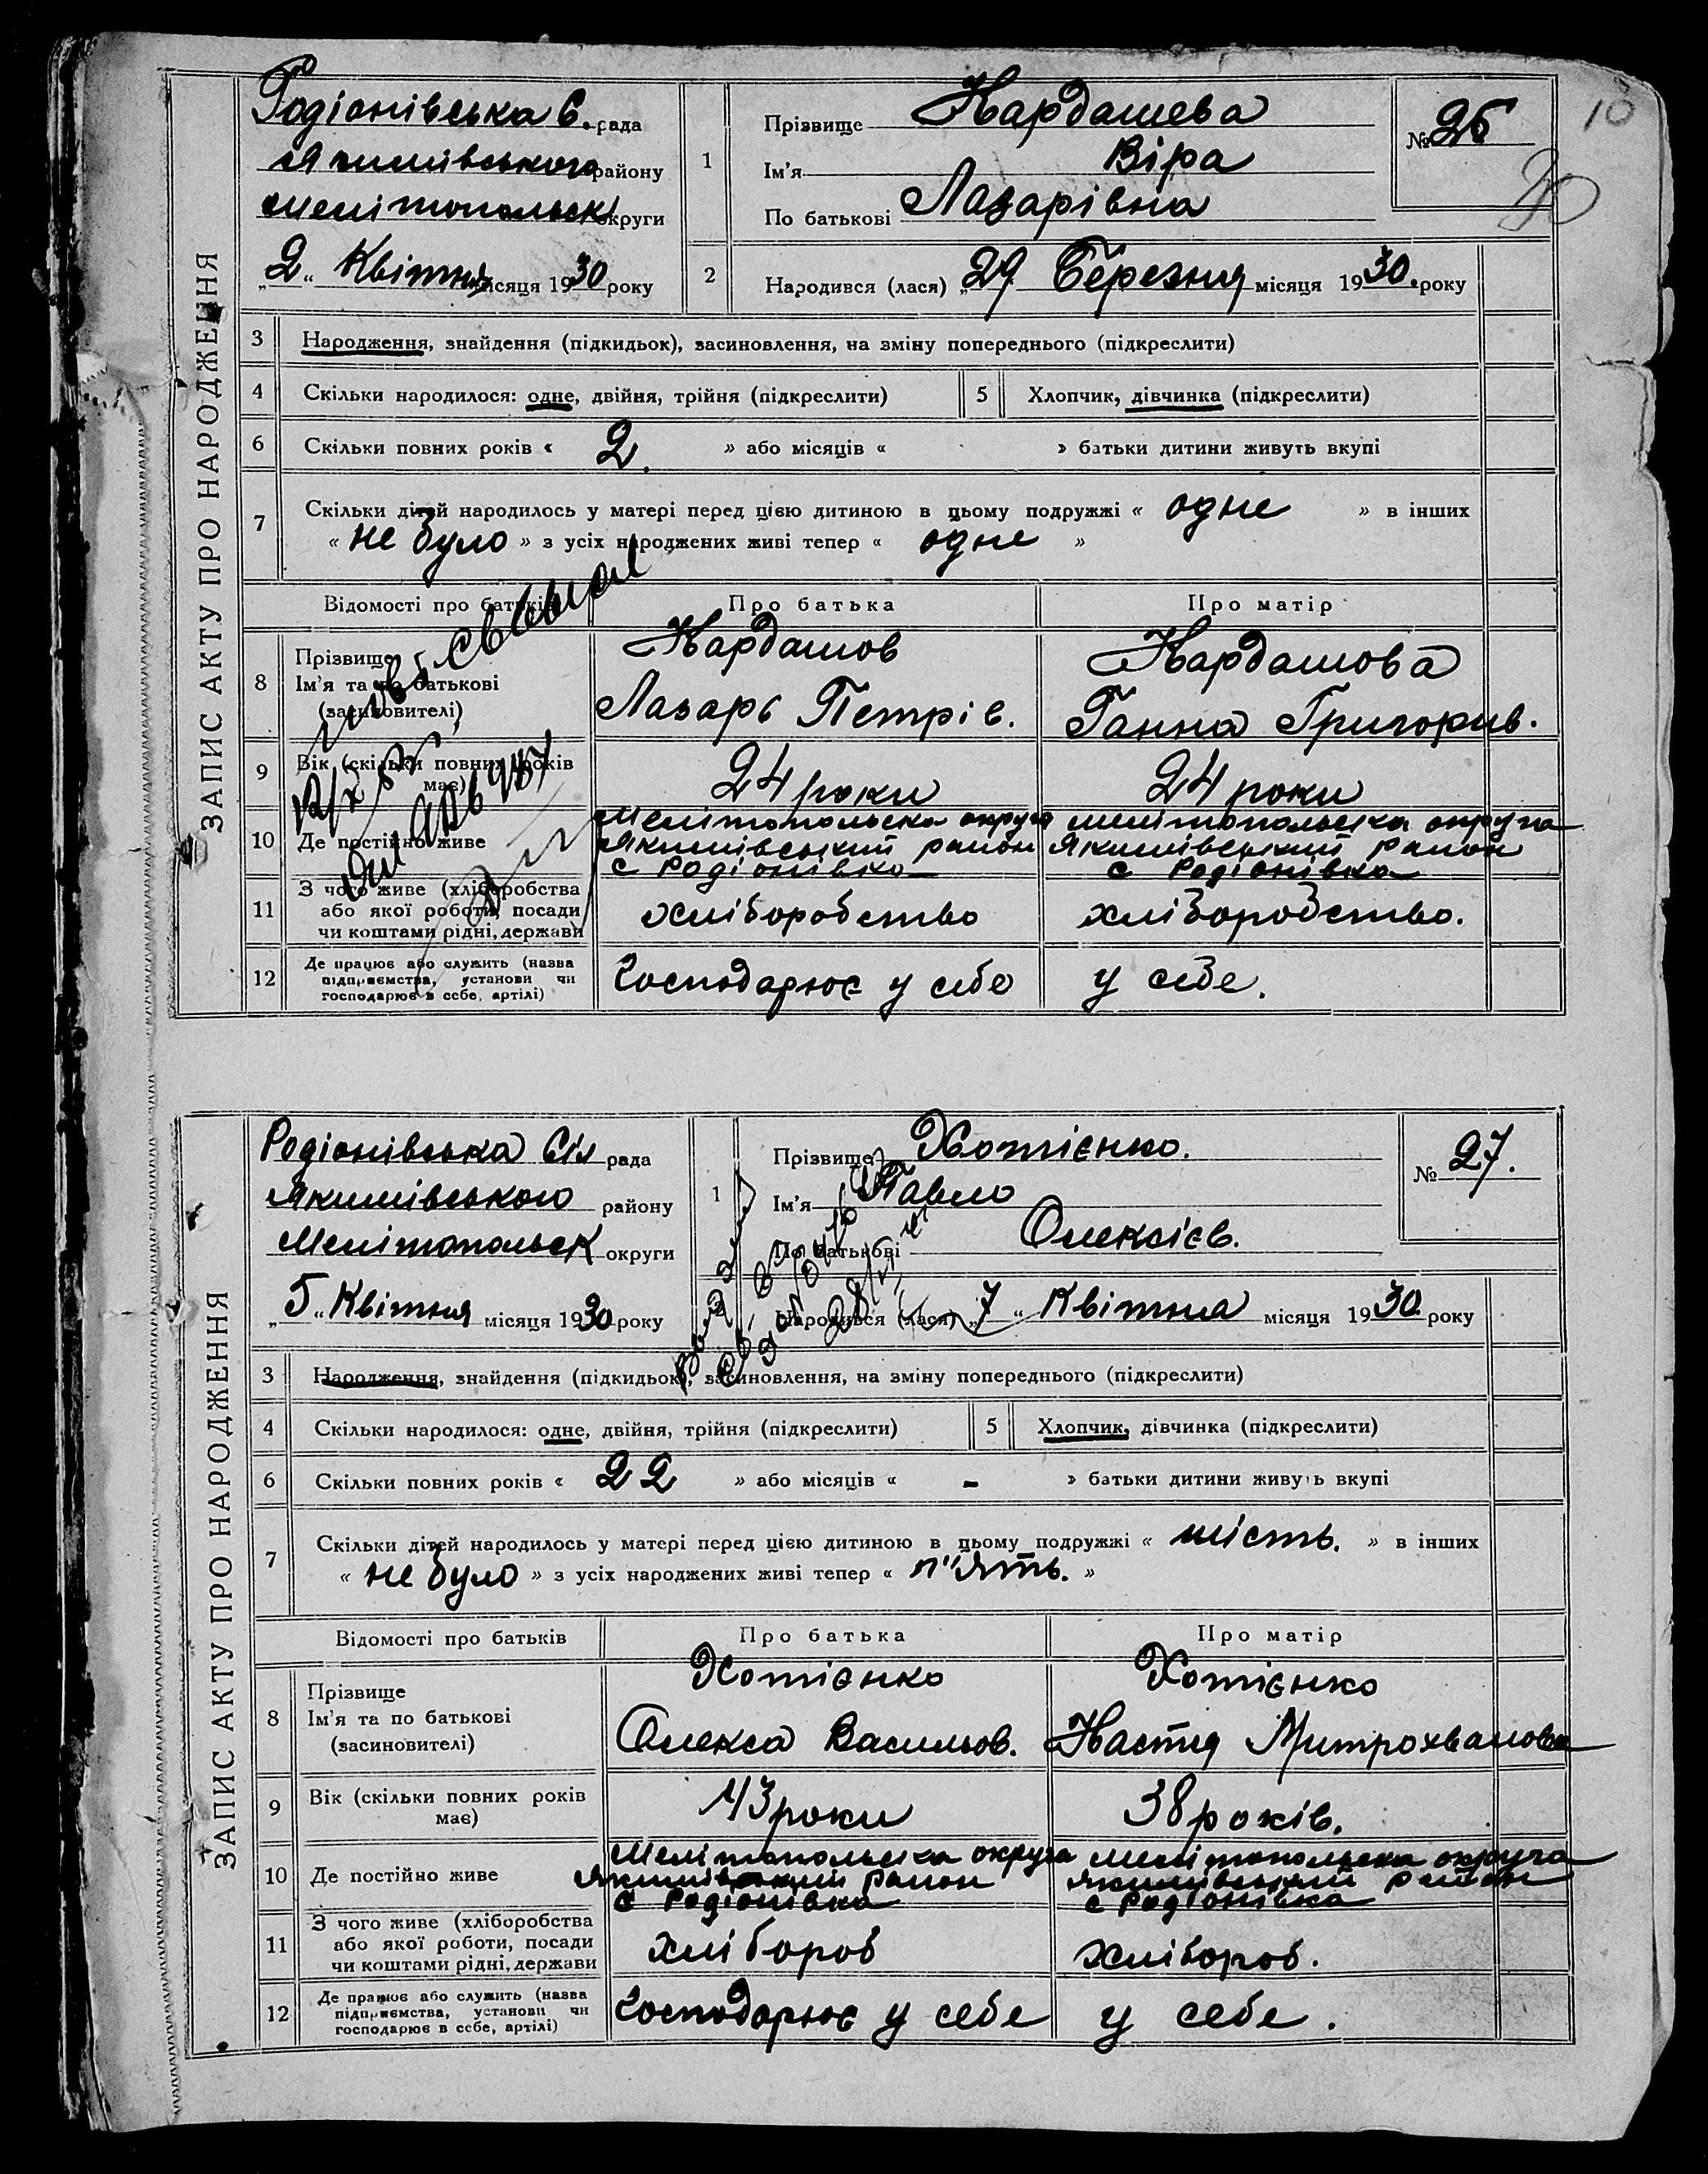 ЗАПИС АКТУ ПРО НАРОДЖЕННЯ
10
30
Родіонівська С. рада
Якимівського району
Мелітопольськ округи
„2“ Квітня місяця 1930 року
1
Прізвище Кардашева
Ім'я Віра
По батькові Лазарівна
№ 26
2
Народився (лася) „29 Березня місяця 1930. року
3 Народження, знайдення (підкидьок), засиновлення, на зміну попереднього (підкреслити)
4 Скільки народилося: одне, двійня, трійня (підкреслити) 5 Хлопчик, дівчинка (підкреслити)
6 Скільки повних років « 2. » або місяців « » батьки дитини живуть вкупі
7 Скільки дітей народилось у матері перед цією дитиною в цьому подружжі « одне » в інших
« не було » з усіх народжених живі тепер « одне »
Відомості про батьків Про батька Про матір
8 Прізвище Ім'я та по батькові (засиновителі)
Кардашов Лазарь Петрів.
Кардашова Ганна Григорив.
9 Вік (скільки повних років має) 24 роки 24 роки
10 Де постійно живе
Мелітопольска округа Якимівський район с Родіонівка
мелітопольска округа Якимівський район с Родіонівка
11 З чого живе (хліборобства або якої роботи, посади чи коштами рідні, держави
хліборобство хліборобство.
12 Де працює або служить (назва підприємства, установи чи господарює в себе, артілі)
Господарює у себе у себе.
ЗАПИС АКТУ ПРО НАРОДЖЕННЯ
Родіонівська Сіл рада
Якимівського району
Мелітопольськ округи
„5“ Квітня місяця 1930 року
1
Прізвище Хотієнко.
Ім'я Павло
По батькові Олексієв.
№ 27.
Народився (лася) „7“ Квітня місяця 1930 року
3 Народження, знайдення (підкидьок), засиновлення, на зміну попереднього (підкреслити)
4 Скільки народилося: одне, двійня, трійня (підкреслити) 5 Хлопчик, дівчинка (підкреслити)
6 Скільки повних років « 22 » або місяців « - » батьки дитини живуть вкупі
7 Скільки дітей народилось у матері перед цією дитиною в цьому подружжі « шість. » в інших
« не було » з усіх народжених живі тепер « п"ять. »
Відомості про батьків Про батька Про матір
8 Прізвище Ім'я та по батькові (засиновителі)
Хотієнко Олекса Васильов.
Хотієнко Настя Митрохванова
9 Вік (скільки повних років має) 43 роки 38 років.
10 Де постійно живе
Мелітопольска округа Якимівський район с Родіонівка
мелітопольска округа Якимівський район с Родіонівка
11 З чого живе (хліборобства або якої роботи, посади чи коштами рідні, держави
хлібороб хлібороб.
12 Де працює або служить (назва підприємства, установи чи господарює в себе, артілі)
Господарює у себе у себе.